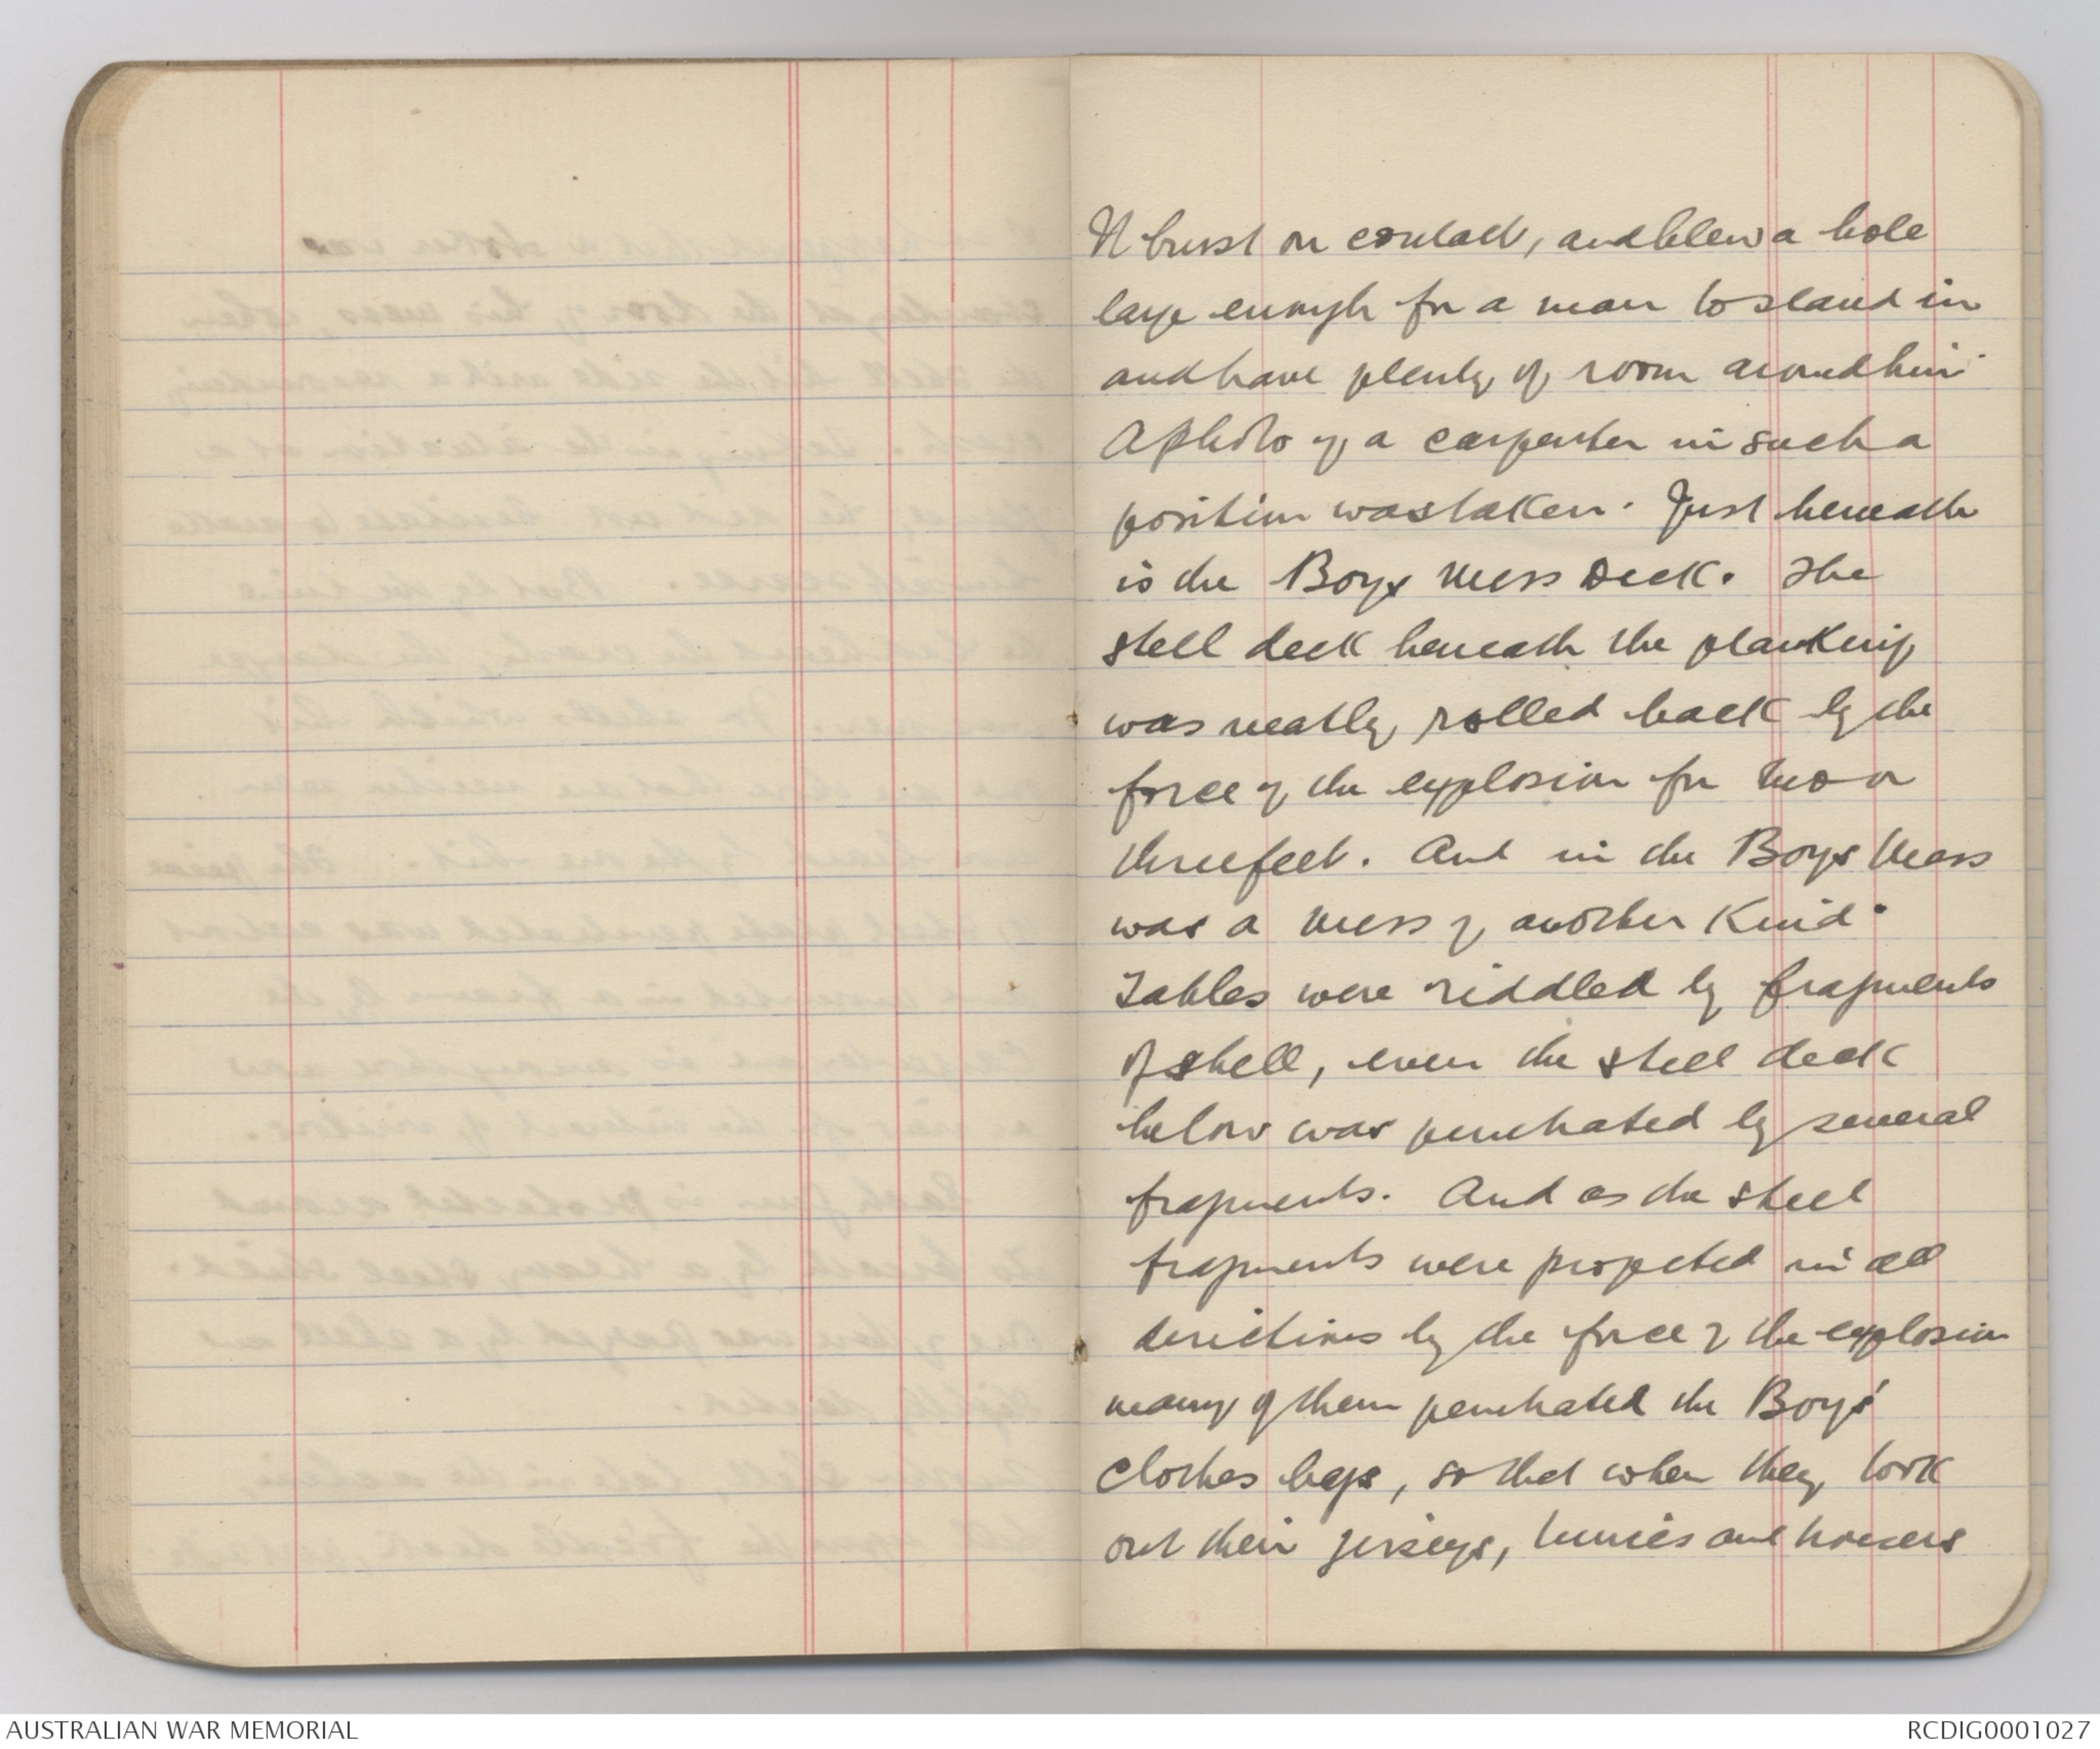 It burst on contact, and blew a hole
large enough for a man to stand in
and have plenty of room around him.
A photo of a carpenter in such a
position was taken. Just beneath
is the Boys Mess Deck. The
steel deck beneath the planking
was neatly rolled back by the
force of the explosion for two or
three feet. And in the Boys Mess
was a mess of another kind.
Tables were riddled by fragments
of shell, even the steel deck
below was penetrated by several
fragments. And as the steel
fragments were projected in all
directions by the force of the explosion
many of them penetrated the Boys'
clothes bags, so that when they took
out their jerseys, tunics and trousers
AUSTRALIAN WAR MEMORIAL
RCDIG0001027